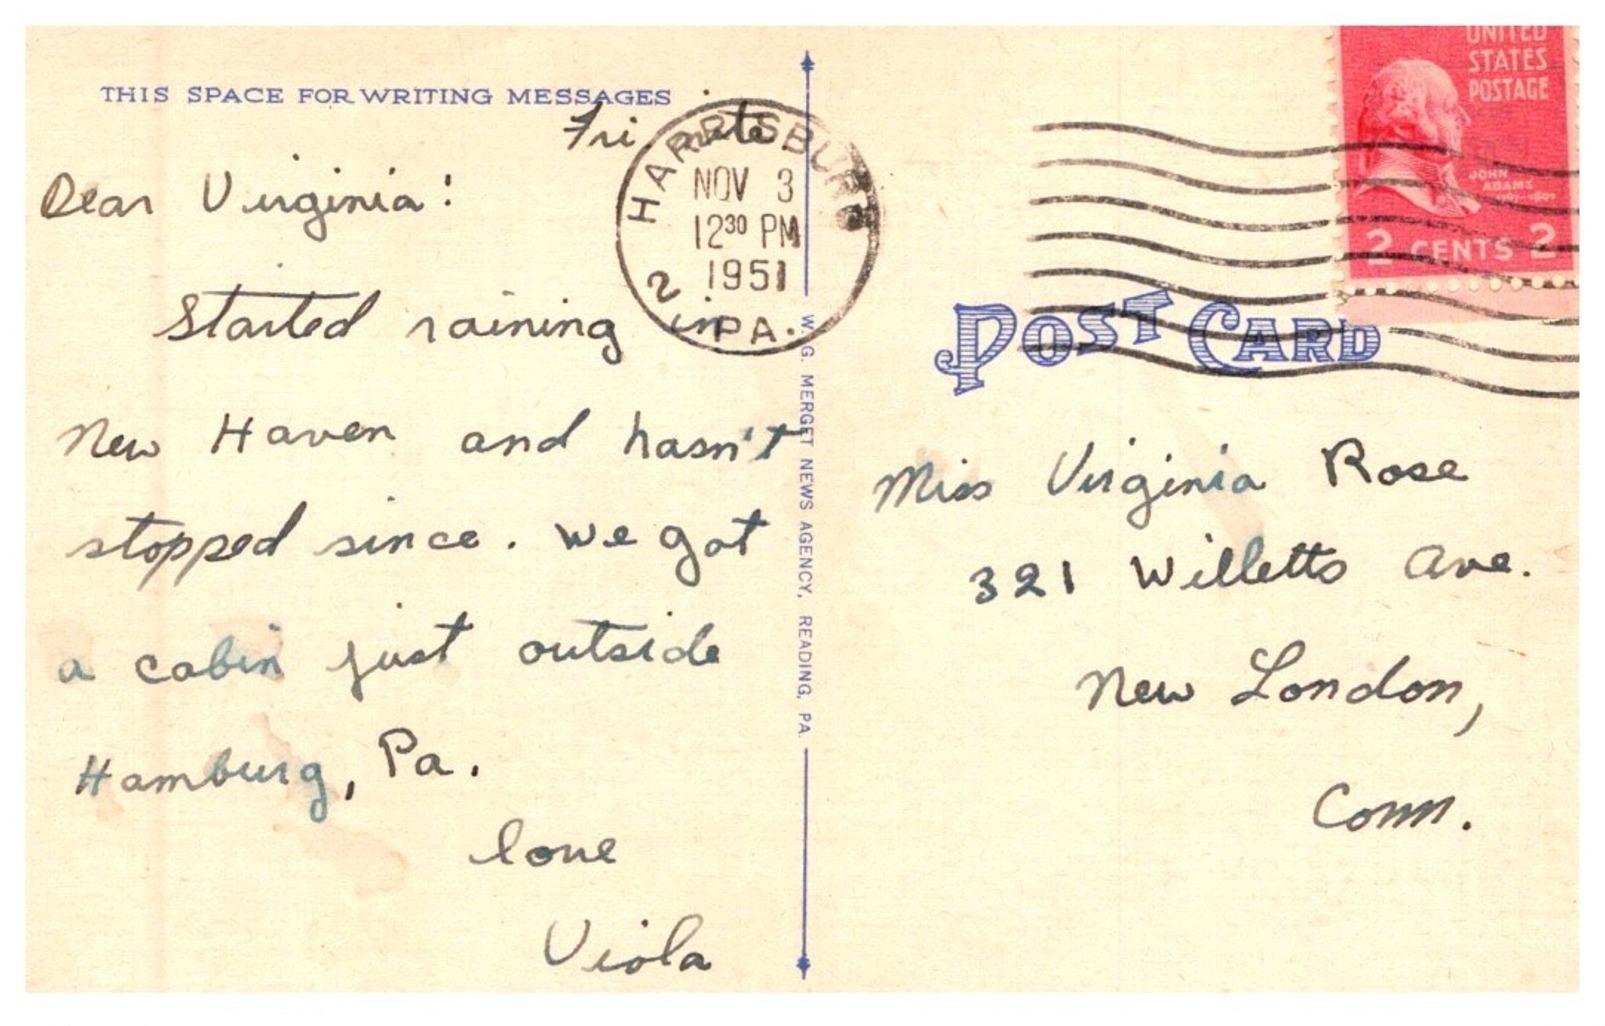 THIS SPACE FOR WRITING MESSAGES
Fri. nite
Dear Virginia:
Started raining in
New Haven and hasn't
stopped since. We got
a cabin just outside
Hamburg, Pa.
love
Viola
HARRISBURG
NOV 3
12 30 PM
1951
2
PA.
W. G. MERGET NEWS AGENCY, READING, PA.
UNITED
STATES
POSTAGE
JOHN
ADAMS
2 CENTS 2
POST CARD
Miss Virginia Rose
321 Willetts Ave.
New London,
Conn.